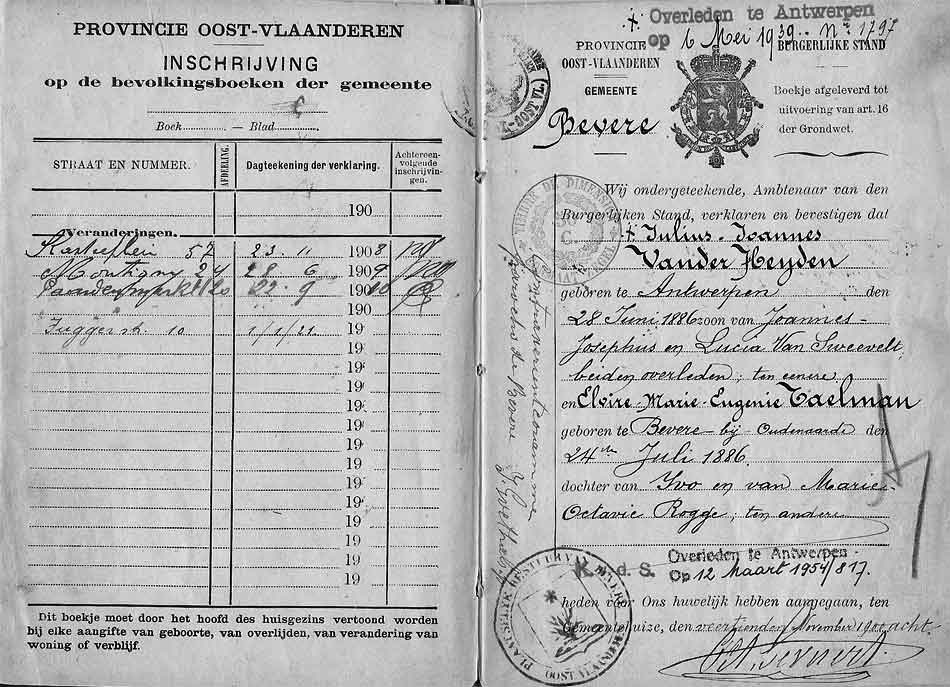 PROVINCIE OOST-VLAANDEREN
INSCHRIJVING
op de bevolkingsboeken der gemeente
Boek — Blad
STRAAT EN NUMMER. AFDEELING. Dagteekening der verklaring. Achtereen-volgende inschrijvin-gen.
190
Veranderingen.
57 23 . 11 1908
Montigny 24 28 . 6 1909
22 . 9 190
190
10 1/1/21 19
19
19
19
19
19
19
19
19
19
19
19
19
19
Dit boekje moet door het hoofd des huisgezins vertoond worden
bij elke aangifte van geboorte, van overlijden, van verandering van
woning of verblijf.
+ Overleden te Antwerpen
op 6 Mei 1939 - No 1797
PROVINCIE
OOST-VLAANDEREN
GEMEENTE
Bevere
BURGERLIJKE STAND
Boekje afgeleverd tot
uitvoering van art. 16
der Grondwet.
Wij ondergeteekende, Ambtenaar van den
Burgerlijken Stand, verklaren en bevestigen dat
+ Julius - Joannes
Vander Heyden
geboren te Antwerpen den
28 Juni 1886 zoon van Joannes-
Josephus en Lucia Van Sweevelt,
beiden overleden ; ten eenere
en Elvire - Marie - Eugenie Taelman
geboren te Bevere - bij - Oudenaarde den
24sten Juli 1886
dochter van Yvo en van Marie-
Octavie Rogge ; ten andere
K. d. S. Overleden te Antwerpen
Op 12 Maart 1954/817.
heden voor Ons huwelijk hebben aangegaan, ten
Gemeentehuize, den veertienden November 190 acht.
OOST-VLAANDEREN